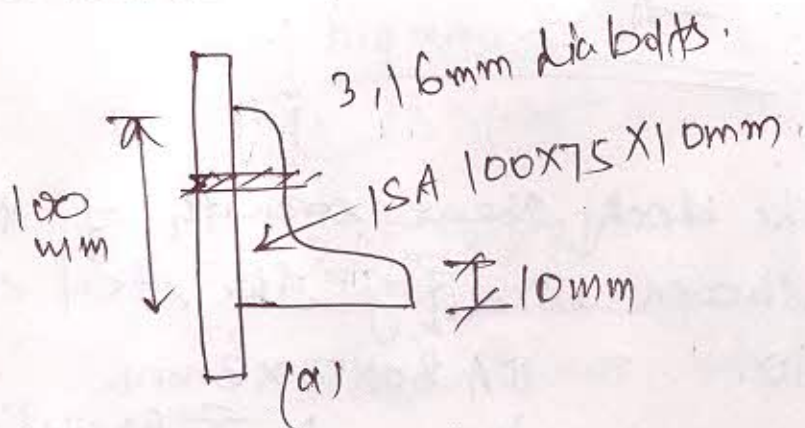 3, 16mm dia bolts.
ISA 100X75X10mm.
100
mm
10mm
(a)